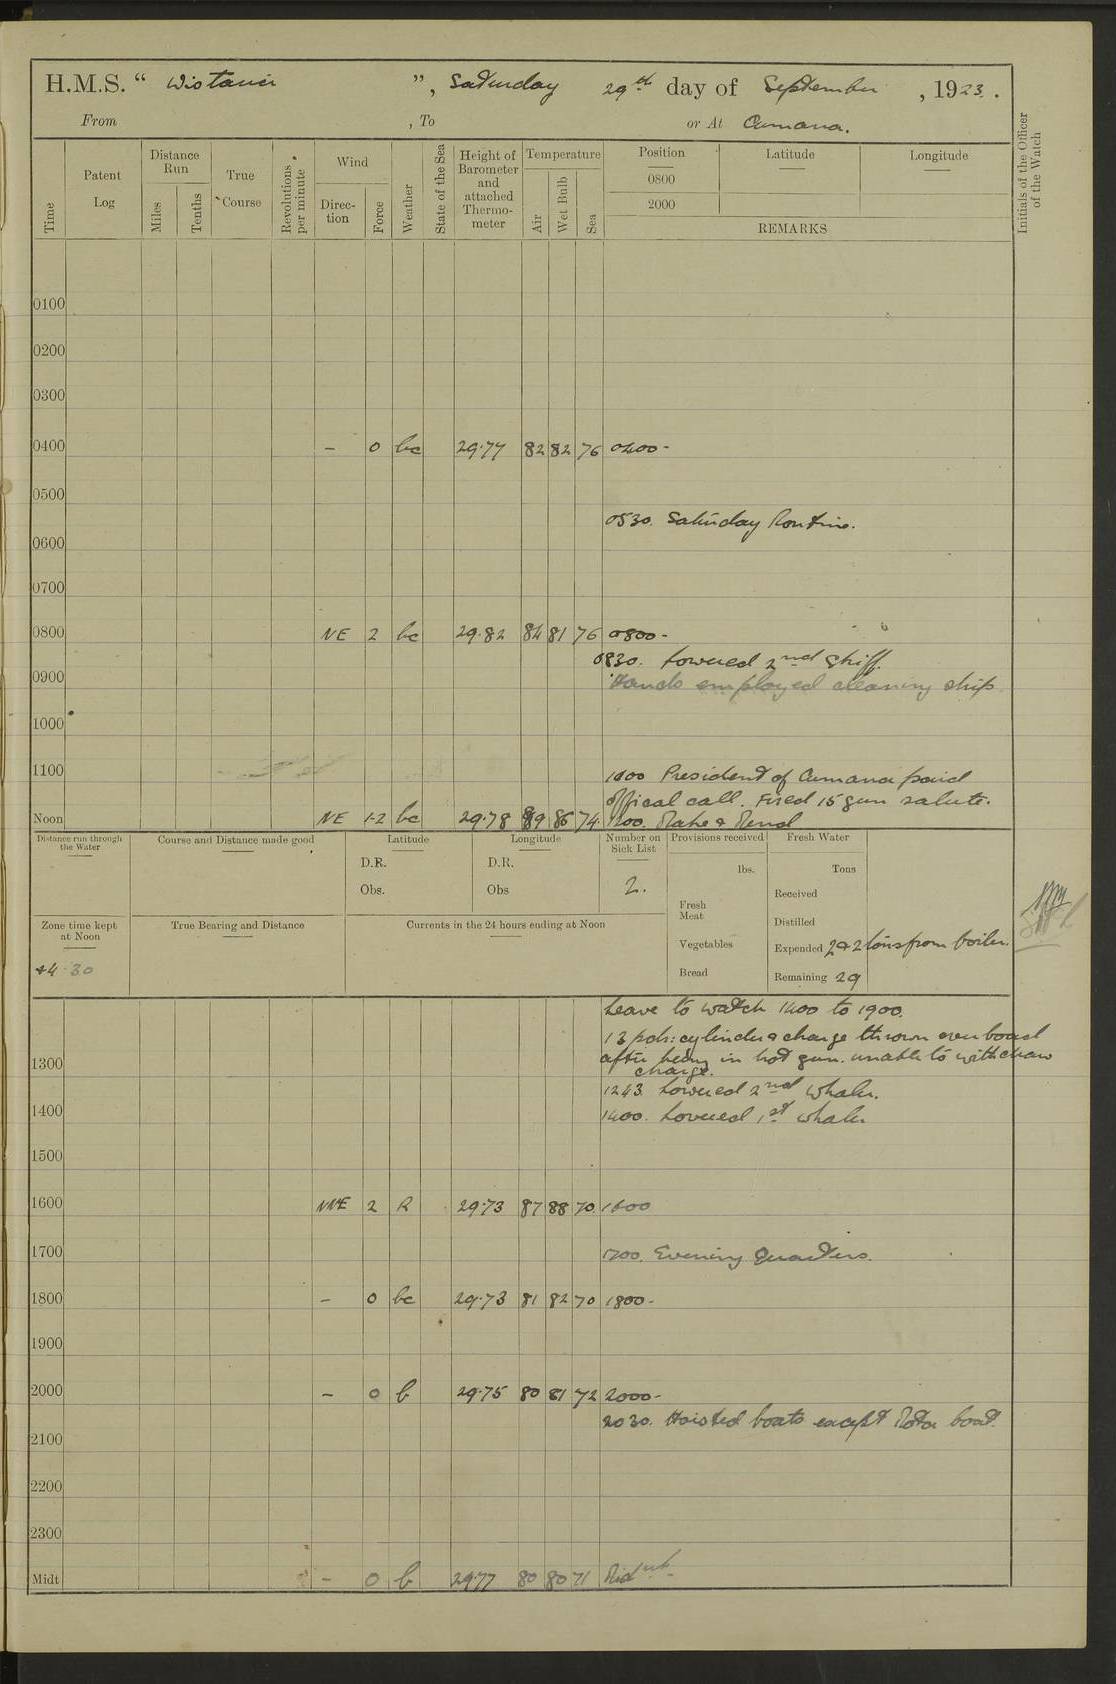 H.M.S. “ Wistaria ”, Saturday 29th day of September , 1923.
From , To or At Cumana.
Time
Patent Log
Distance Run
Miles
Tenths
True Course
Revolutions per minute
Wind
Direc-tion
Force
Weather
State of the Sea
Height of Barometer and attached Thermo-meter
Temperature
Air
Wet Bulb
Sea
Position
0800
2000
Latitude
Longitude
REMARKS
Initials of the Officer of the Watch
0100
0200
0300
0400 - 0 bc 29·77 82 82 76 0400-
0500
0530. Saturday Routine.
0600
0700
0800 NE 2 bc 29·82 84 81 76 0800-
0830. Lowered 2nd Skiff.
0900 Hands employed cleaning ship
1000
1100
1100 President of Cumana paid
offical call. Fired 15 gun salute.
Noon NE 1-2 bc 29·78 89 86 74 1200. Make & Mend
Distance run through the Water
Course and Distance made good
Latitude
D.R.
Obs.
Longitude
D.R.
Obs
Number on Sick List
2.
Provisions received
lbs.
Fresh Meat
Vegetables
Bread
Fresh Water
Tons
Received
Distilled
Expended 2 & 2 tons from boiler.
Remaining 29
Zone time kept at Noon
+4·30
True Bearing and Distance
Currents in the 24 hours ending at Noon
Leave to watch 1400 to 1900.
1 3 pdr: cylinder & charge thrown overboard
after being in hot gun. unable to withdraw
charge.
1300
1243 Lowered 2nd Whaler.
1400
1400. Lowered 1st whaler
1500
1600 NNE 2 R 29·73 87 88 70 1600
1700 1700. Evening Quarters.
1800 - 0 bc 29·73 81 82 70 1800-
1900
2000 - 0 b 29·75 80 81 72 2000-
2030. Hoisted boats except Motor boat.
2100
2200
2300
Midt - 0 b 29·77 80 80 71 Midnt-